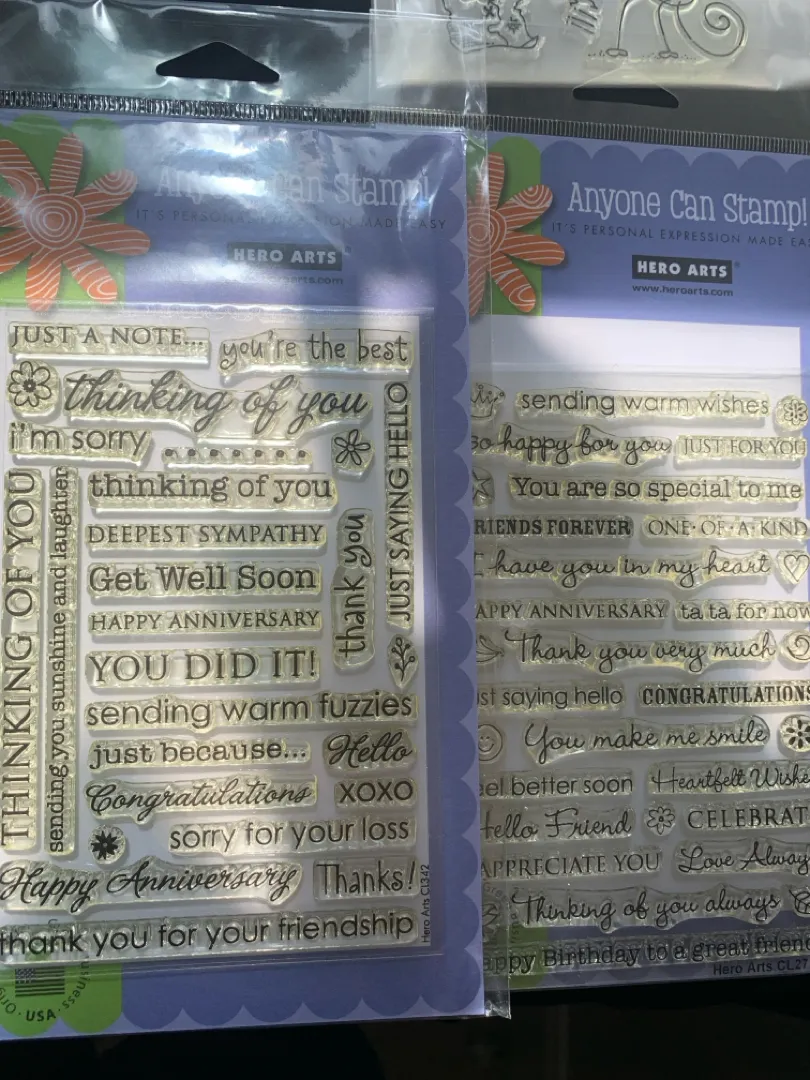 Anyone Can Stamp!
IT'S PERSONAL EXPRESSION MADE EASY
HERO ARTS®
www.heroarts.com
JUST A NOTE...
you're the best
thinking of you
i'm sorry
thinking of you
JUST SAYING HELLO
THINKING OF YOU
sending you sunshine and laughter
DEEPEST SYMPATHY
thank you
Get Well Soon
HAPPY ANNIVERSARY
YOU DID IT!
sending warm fuzzies
just because...
Hello
Congratulations
XOXO
sorry for your loss
Happy Anniversary
Thanks!
thank you for your friendship
Hero Arts CL342
USA
Anyone Can Stamp!
IT'S PERSONAL EXPRESSION MADE EA
HERO ARTS®
www.heroarts.com
sending warm wishes
so happy for you
JUST FOR YOU
You are so special to me
RIENDS FOREVER
ONE·OF·A·KIND
I have you in my heart
APPY ANNIVERSARY
ta ta for now
Thank you very much
st saying hello
CONGRATULATIONS
You make me smile
el better soon
Heartfelt Wishe
Hello Friend
CELEBRAT
APPRECIATE YOU
Love Alway
Thinking of you always
appy Birthday to a great friend
Hero Arts CL27